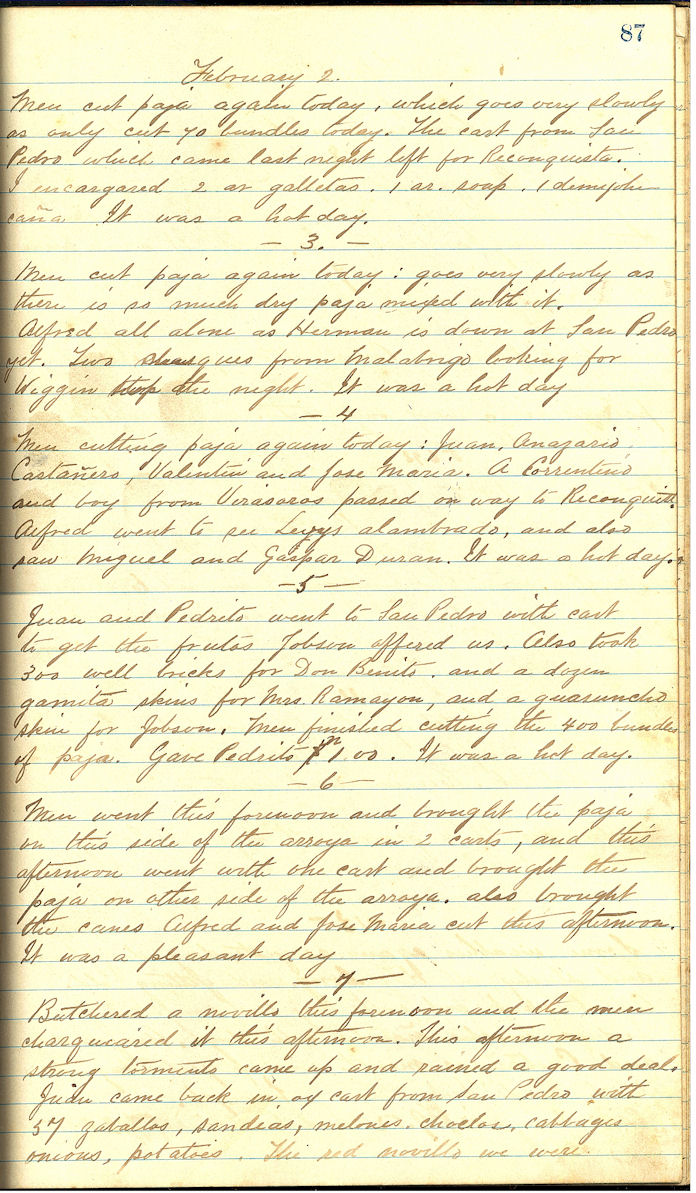 87
February 2.
Men cut paja again today, which goes very slowly
as only cut 70 bundles today. The cart from San
Pedro which came last night left for Reconquista.
I encargared 2 ar galletas. 1 ar. soap. 1 demijohn
caña It was a hot day.
— 3. —
Men cut paja again today: goes very slowly as
there is so much dry paja mixed with it.
Alfred all alone as Herman is down at San Pedro
yet. Two from Malabrigo looking for
Wiggin the night. It was a hot day
— 4
Men cutting paja again today: Juan, Anazario,
Castañero, Valentin and Jose Maria. A Correntino
and boy from Verasoros passed on way to Reconquist.
Alfred went to see Levys alambrado, and also
saw Miguel and Gaspar Duran. It was a hot day.
— 5 —
Juan and Pedrito went to San Pedro with cart
to get the frutas Jobson offered us. Also took
300 well bricks for Don Benito. and a dozen
gamita skins for Mrs. Ramayon, and a guasuncho
skin for Jobson. Men finished cutting the 400 bundles
of paja. Gave Pedrito $1.00. It was a hot day.
— 6 —
Men went this forenoon and brought the paja
on this side of the arroya in 2 carts, and this
afternoon went with one cart and brought the
paja on other side of the arroya. also brought
the canes Alfred and Jose Maria cut this afternoon.
It was a pleasant day
— 7 —
Butchered a novillo this forenoon and the men
charqueared it this afternoon. This afternoon a
strong tormenta came up and rained a good deal.
Juan came back in ox cart from San Pedro with
57 zaballos, sandias, melones. choclos, cabbages
onions, potatoes. The red novillo we were